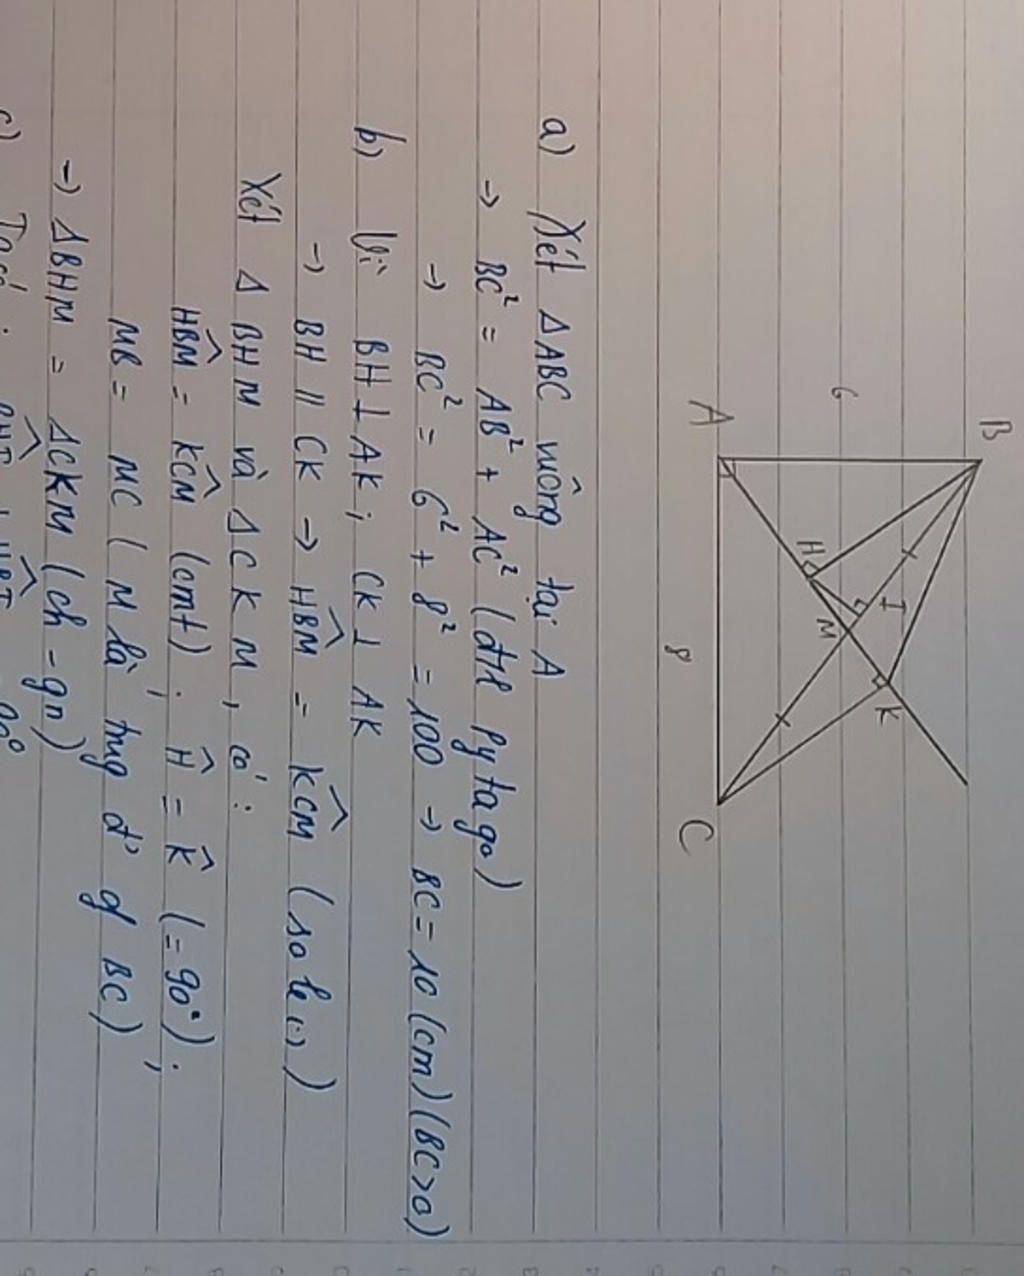 B
6
I
H
M
K
A
8
C
a) Xét ΔABC vuông tại A
→ BC² = AB² + AC² (đtl Pytago)
→ BC² = 6² + 8² = 100 → BC = 10 (cm) (BC>0)
b) Vì BH ⊥ AK; CK ⊥ AK
→ BH // CK → HBM̂ = KCM̂ (so le
Xét Δ BHM và Δ CKM, có:
HBM̂ = KCM̂ (cmt); Ĥ = K̂ (= 90°);
MB = MC (M là trung đ' of BC)
→ ΔBHM = ΔCKM (ch - gn)
c) Ta có: